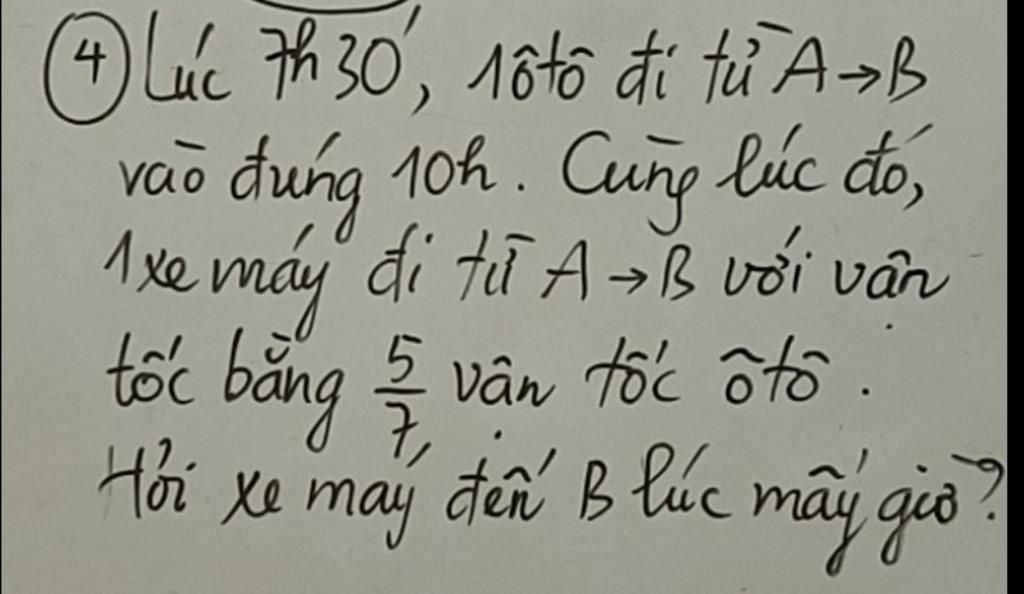 ④ Lúc 7h30', 1ôtô đi từ A→B
vào đúng 10h. Cùng lúc đó,
1 xe máy đi từ A→B với vận
tốc bằng 5/7 vận tốc ôtô.
Hỏi xe máy đến B lúc mấy giờ?